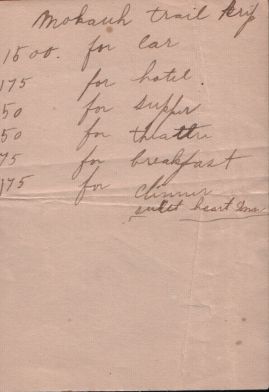 Mohauk trail trip
1500. for car
175 for hotel.
50 for supper
50 for theattre
75 for breakfast
175 for dinner
heart